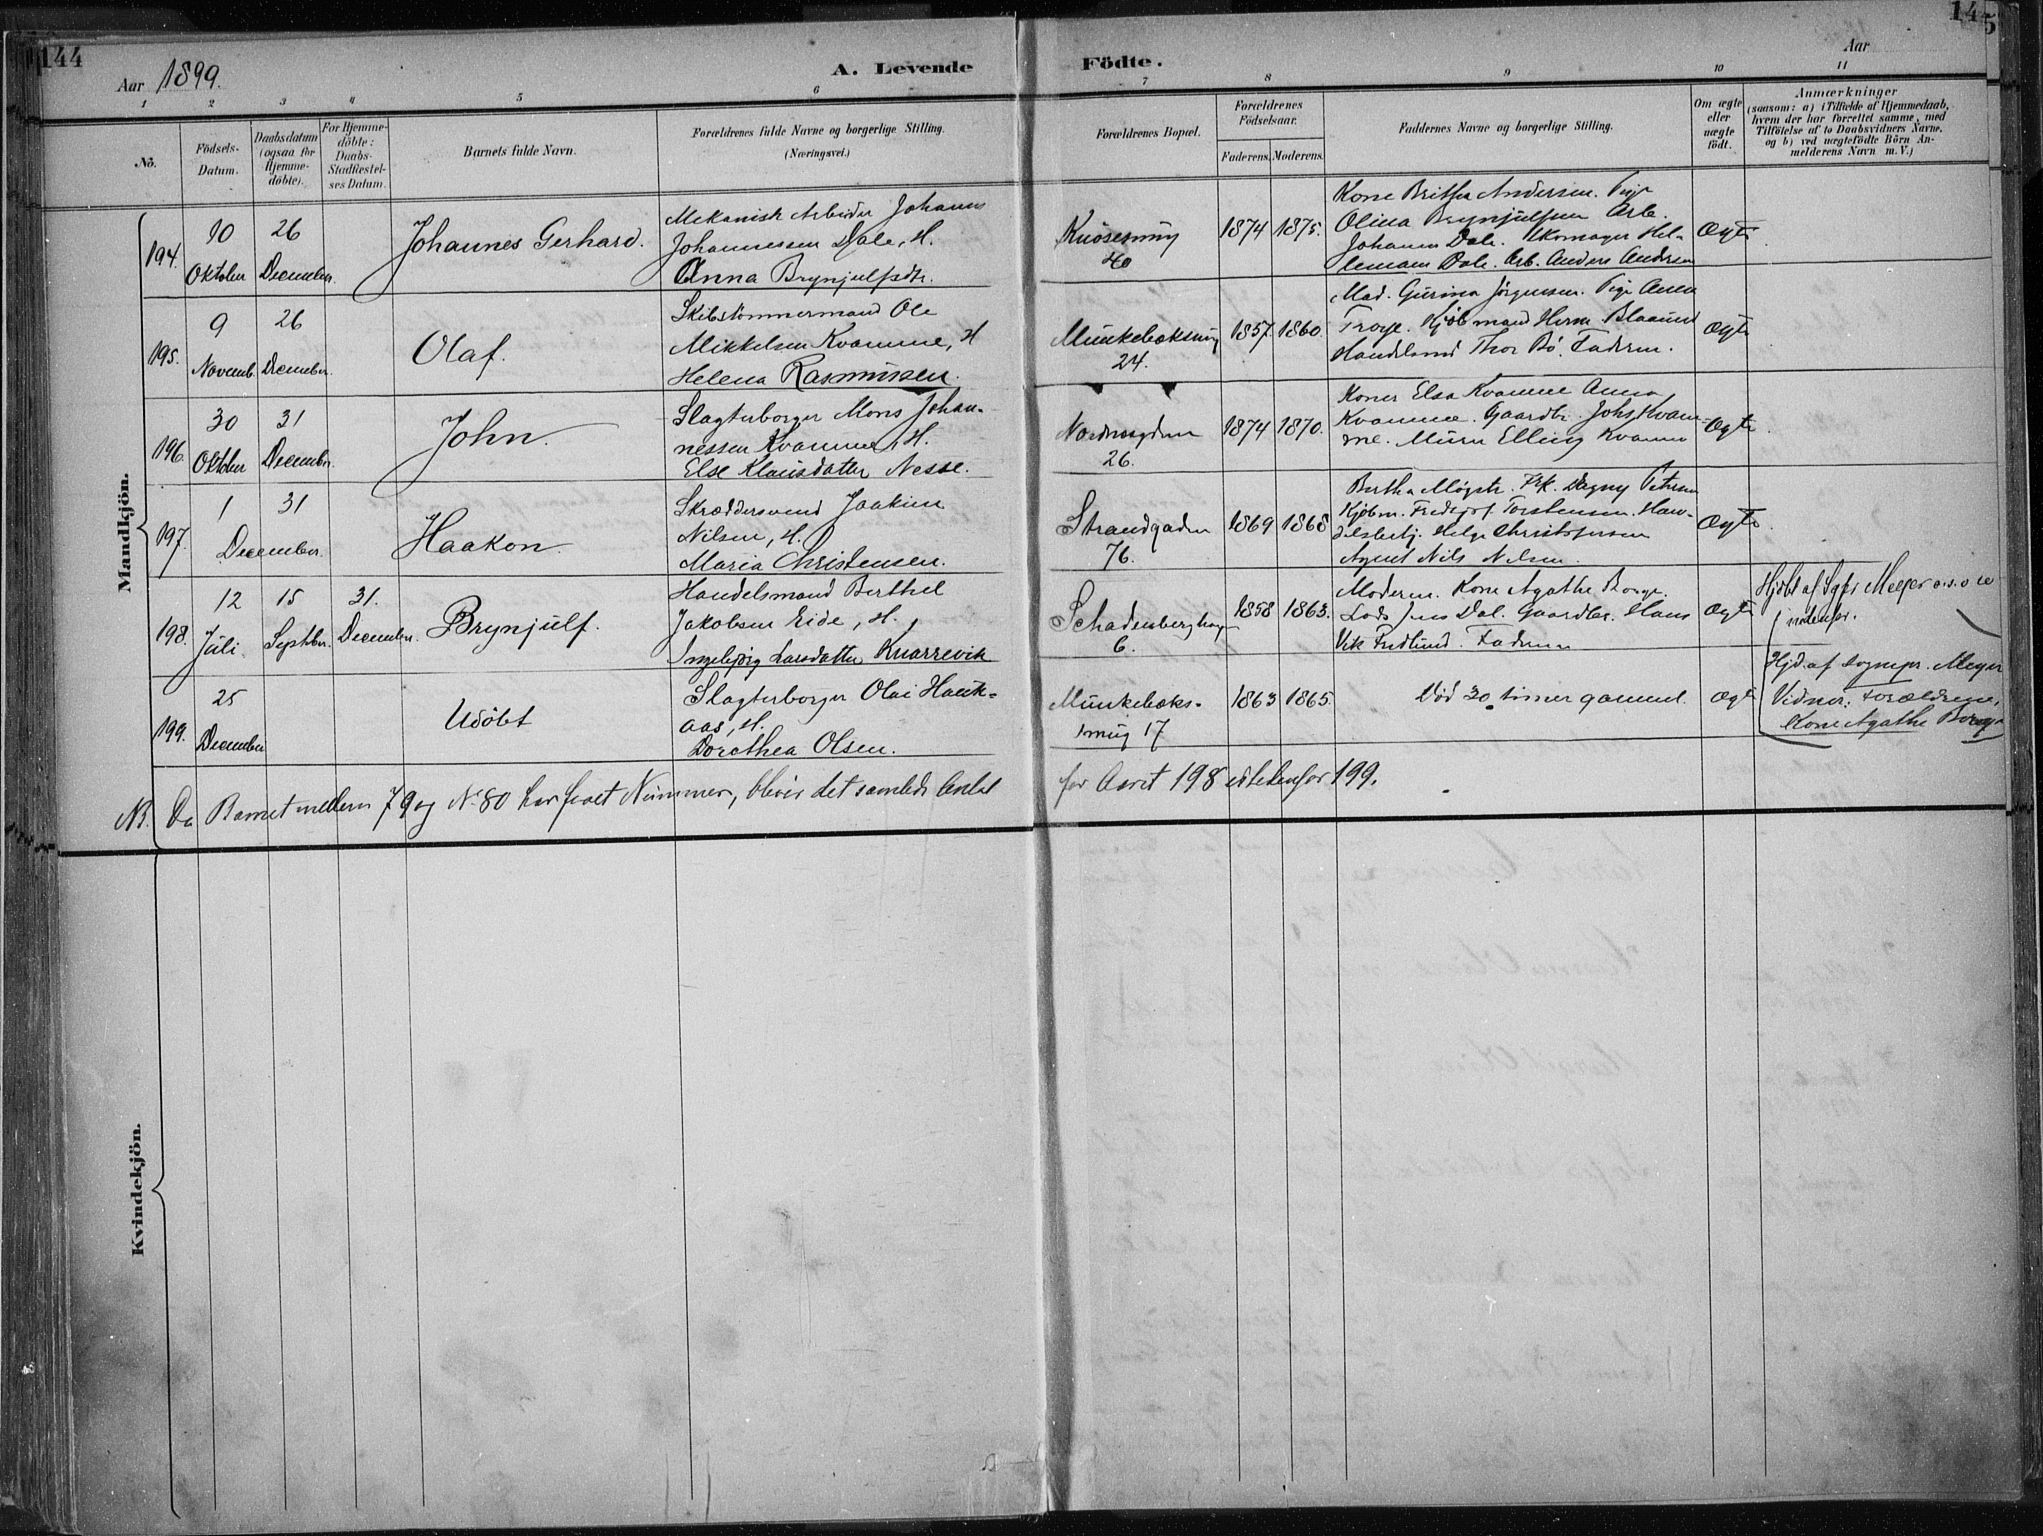 144
145
Aar 1899.
A. Levende
Födte.
Aar
1 2 3 4 5 6 7 8 9 10 11
No.
Födsels-
Datum.
Daabsdatum
(ogsaa for
Hjemme-
döbte).
For Hjemme-
döbte:
Daabs-
Stadfæstel-
ses Datum.
Barnets fulde Navn.
Forældrenes fulde Navne og borgerlige Stilling.
(Næringsvei.)
Forældrenes Bopæl.
Forældrenes
Födselsaar.
Faderens.
Moderens.
Faddernes Navne og borgerlige Stilling.
Om ægte
eller
uægte
födt.
Anmærkninger
(saasom: a) i Tilfælde af Hjemmedaab,
hvem der har forrettet samme, med
Tilföielse af to Daabsvidners Navne,
og b) ved uægtefödte Börn An-
melderens Navn m. V.)
Mandkjön.
194.
10
Oktober
26
December.
Johannes Gerhard.
Mekanisk Arbeider Johannes
Johannessen Dale, H.
Anna Brynjulfsdtr.
Knøsesmug
40
1874
1875.
Kone Britha Andersen. Pige
Olina Brynjulfsen Arb.
Johannes Dale. Skomager Hel-
lemann Dale. Arb. Anders Andersen
Ægte
195.
9
Novemb.
26
December.
Olaf.
Skibstømmermand Ole
Mikkelsen Kvamme, H
Helena Rasmussen.
Munkebæksmug
24.
1857.
1860.
Mad. Gurina Jørgensen. Pige Anna
Troye. Kjøbmand Herm Blaauw
Handelsmd Thor Bø. Faderen.
Ægte
196.
30
Oktober
31
December.
John.
Slagterborger Mons Johan-
nessen Kvamme, H.
Else Klausdatter Nesse.
Nordnæsgaden
26.
1874
1870.
Koner Elsa Kvamme Anna
Kvamme. Gaardbr. Johs Kvam-
me. Murer Elling Kvamme
Ægte
197.
1
December.
31
Haakon.
Skræddersvend Joakim
Nilsen, H.
Maria Christensen.
Strandgaden
76.
1869
1868
Bertha Møgstr. Frk. Dagny Petersen
Kjøbm. Fredtjof Torstensen. Han-
delsbetj. Helge Christophersen
Agent Nils Nilsen.
Ægte.
198.
12
Juli.
15
Septbr.
31.
December.
Brynjulf.
Handelsmand Berthel
Jakobsen Eide, H.
Ingebjørg Larsdatter Knarrevik
Schadesberghaug
6.
1858
1863.
Moderen. Kone Agathe Borge.
Lods Jens Dal. Gaardbr. Hans
Vik Fredlund. Faderen
Ægte
Hjdbt af Sgpr Meyer
199.
25
December
Udøbt
Slagterborger Olai Hauk-
aas, H.
Dorothea Olsen.
Munkebæks-
smug 17
1863
1865.
Død 30 timer gammel.
Ægte
Hjd. af Sognepr. Meyer
Vidner: Forældrene,
Kone Agathe Borge
NB. Da Barnet mellem 79 og No 80 har faaet Nummer, bliver det samlede Antal
for Aaret 198 istedenfor 199.
Kvindekjön.